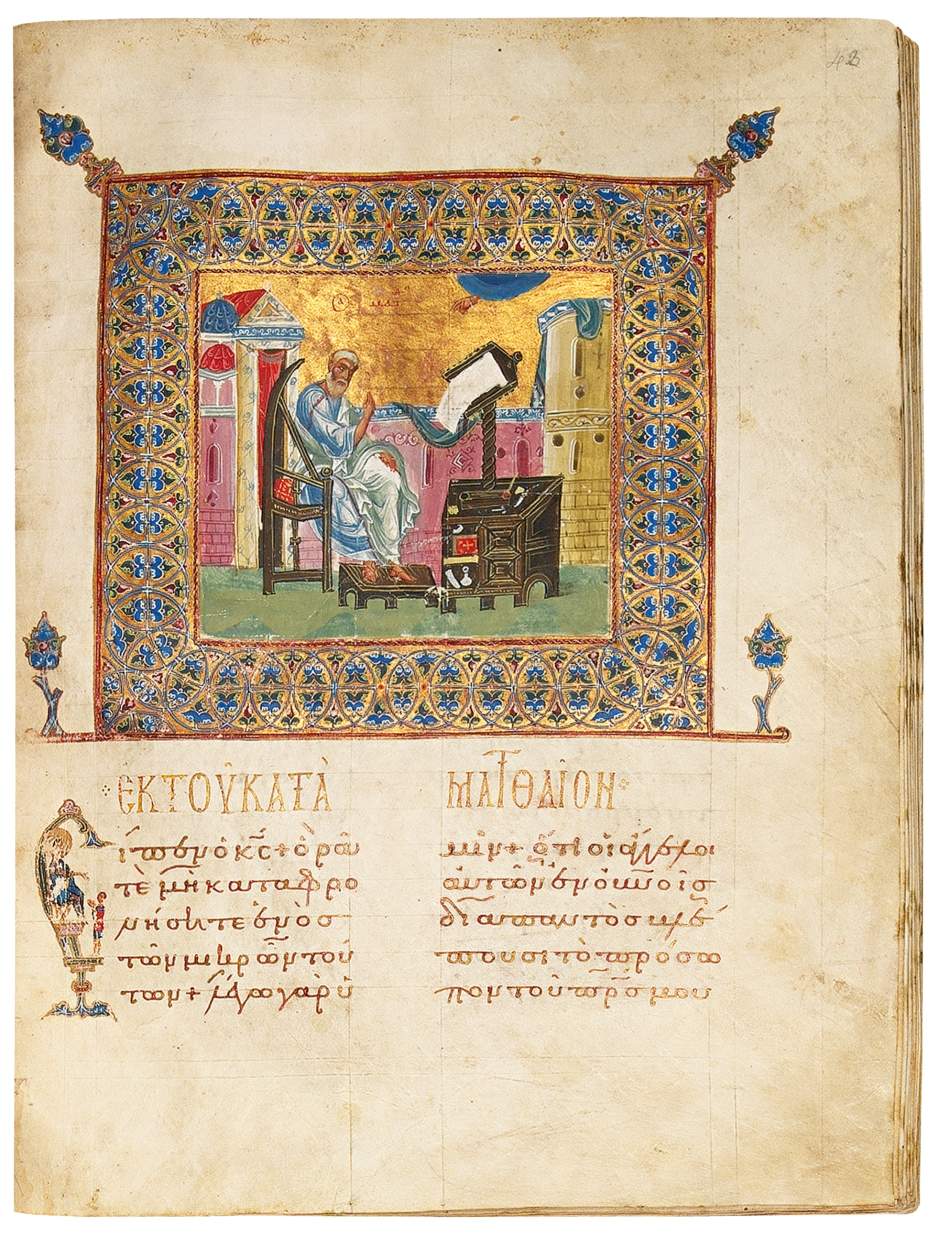 43
ἐκ τοῦ κατὰ Ματθαῖον
Εἶπεν ὁ κ̅ς̅ + ὁρᾶ
τε μὴ καταφρο
νήσητε ἑνὸς
τῶν μικρῶν τού
των + λέγω γὰρ ὑ
μῖν + ὅτι οἱ ἄγγελοι
αὐτῶν ἐν οὐ̅νοῖς
διαπαντὸς βλέ
πουσι τὸ πρόσω
πον τοῦ π̅ρ̅ς̅ μου